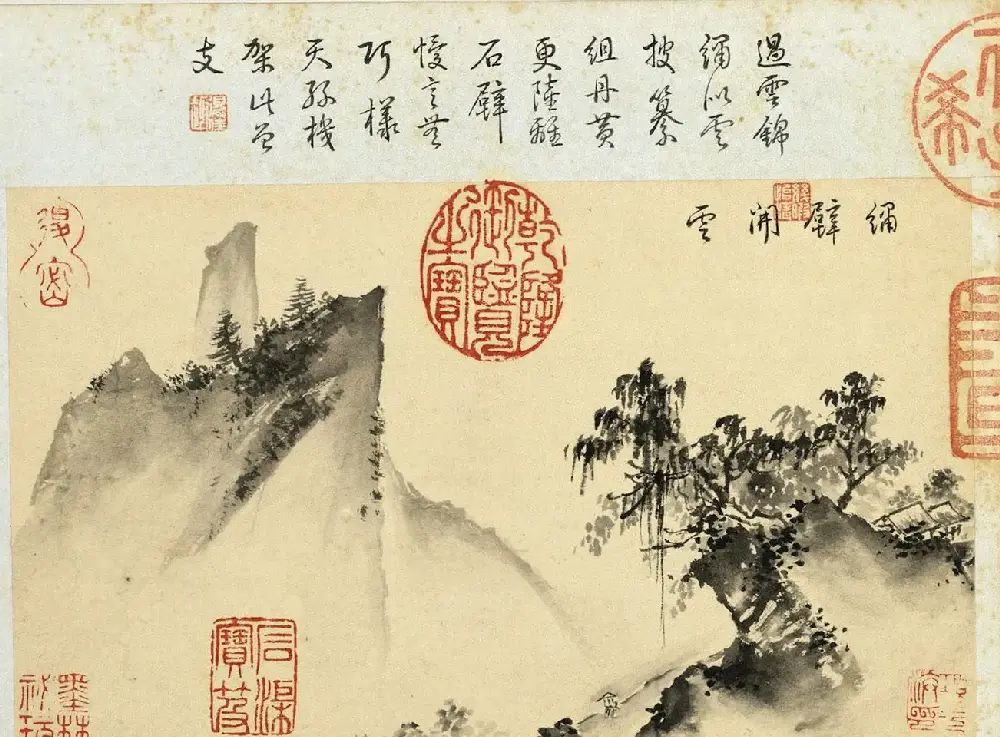 過雲錦
繡似雲
披纂
組丹黃
更陸離
石壁
慢言無
巧樣
天孫機
架此曾
支
繡壁開雲
乾隆御覽之寶
石渠寶笈